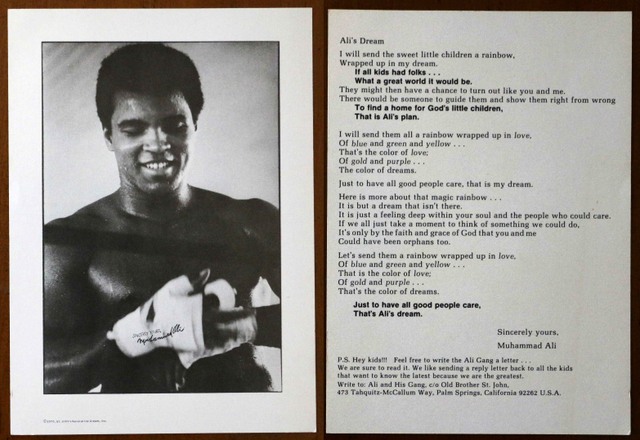 Muhammad Ali
Ali's Dream
I will send the sweet little children a rainbow,
Wrapped up in my dream.
If all kids had folks . . .
What a great world it would be.
They might then have a chance to turn out like you and me.
There would be someone to guide them and show them right from wrong
To find a home for God's little children,
That is Ali's plan.
I will send them all a rainbow wrapped up in love,
Of blue and green and yellow . . .
That's the color of love;
Of gold and purple . . .
The color of dreams.
Just to have all good people care, that is my dream.
Here is more about that magic rainbow . . .
It is but a dream that isn't there.
It is just a feeling deep within your soul and the people who could care.
If we all just take a moment to think of something we could do,
It's only by the faith and grace of God that you and me
Could have been orphans too.
Let's send them a rainbow wrapped up in love,
Of blue and green and yellow . . .
That is the color of love;
Of gold and purple . . .
That's the color of dreams.
Just to have all good people care,
That's Ali's dream.
Sincerely yours,
Muhammad Ali
P.S. Hey kids!!! Feel free to write the Ali Gang a letter . . .
We are sure to read it. We like sending a reply letter back to all the kids
that want to know the latest because we are the greatest.
Write to: Ali and His Gang, c/o Old Brother St. John,
473 Tahquitz-McCallum Way, Palm Springs, California 92262 U.S.A.